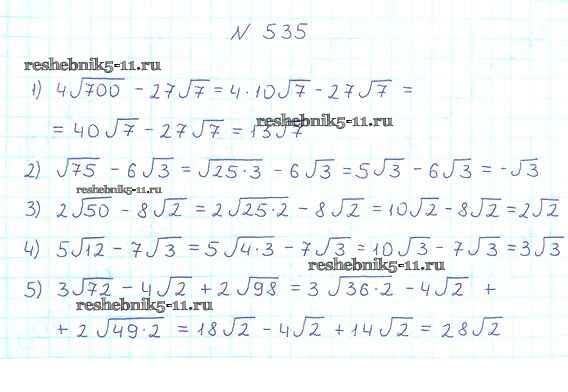 N 535
reshebnik5-11.ru
1) 4√700 - 27√7 = 4·10√7 - 27√7 =
= 40√7 - 27√7 = 13√7
reshebnik5-11.ru
2) √75 - 6√3 = √25·3 - 6√3 = 5√3 - 6√3 = -√3
reshebnik5-11.ru
3) 2√50 - 8√2 = 2√25·2 - 8√2 = 10√2 - 8√2 = 2√2
4) 5√12 - 7√3 = 5√4·3 - 7√3 = 10√3 - 7√3 = 3√3
reshebnik5-11.ru
5) 3√72 - 4√2 + 2√98 = 3√36·2 - 4√2 +
reshebnik5-11.ru
+ 2√49·2 = 18√2 - 4√2 + 14√2 = 28√2